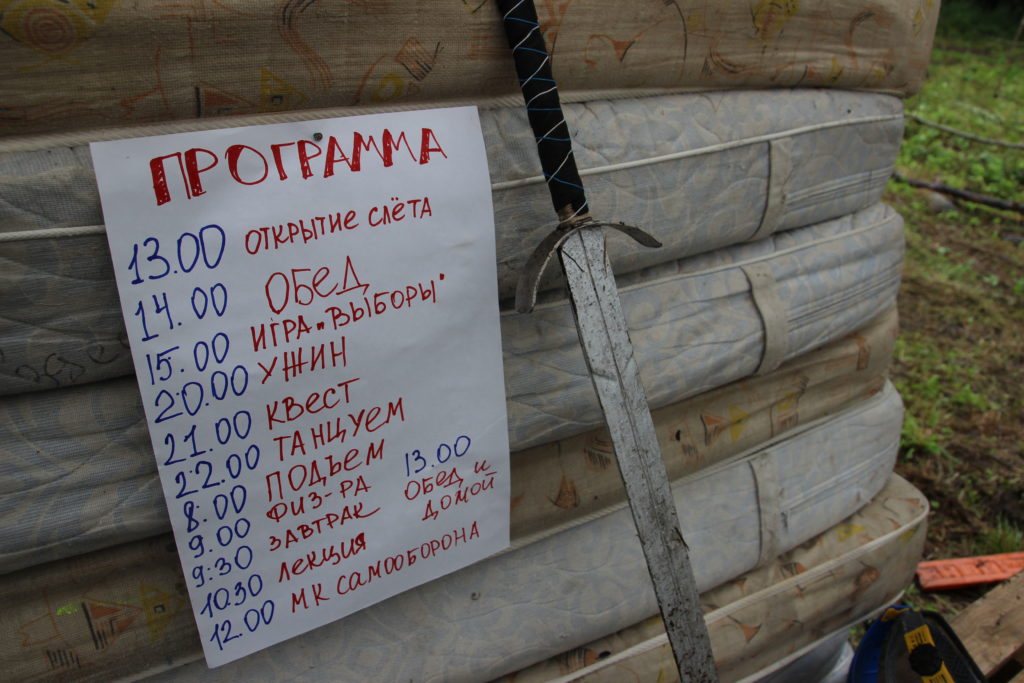 ПРОГРАММА
13.00 ОТКРЫТИЕ СЛЁТА
14.00 ОБЕД
15.00 ИГРА "ВЫБОРЫ"
20.00 УЖИН
21.00 КВЕСТ
22.00 ТАНЦУЕМ
8.00 ПОДЪЕМ
9.00 ФИЗ-РА
9:30 ЗАВТРАК
10.30 ЛЕКЦИЯ
12.00 МК САМООБОРОНА
13.00
ОБЕД И
ДОМОЙ